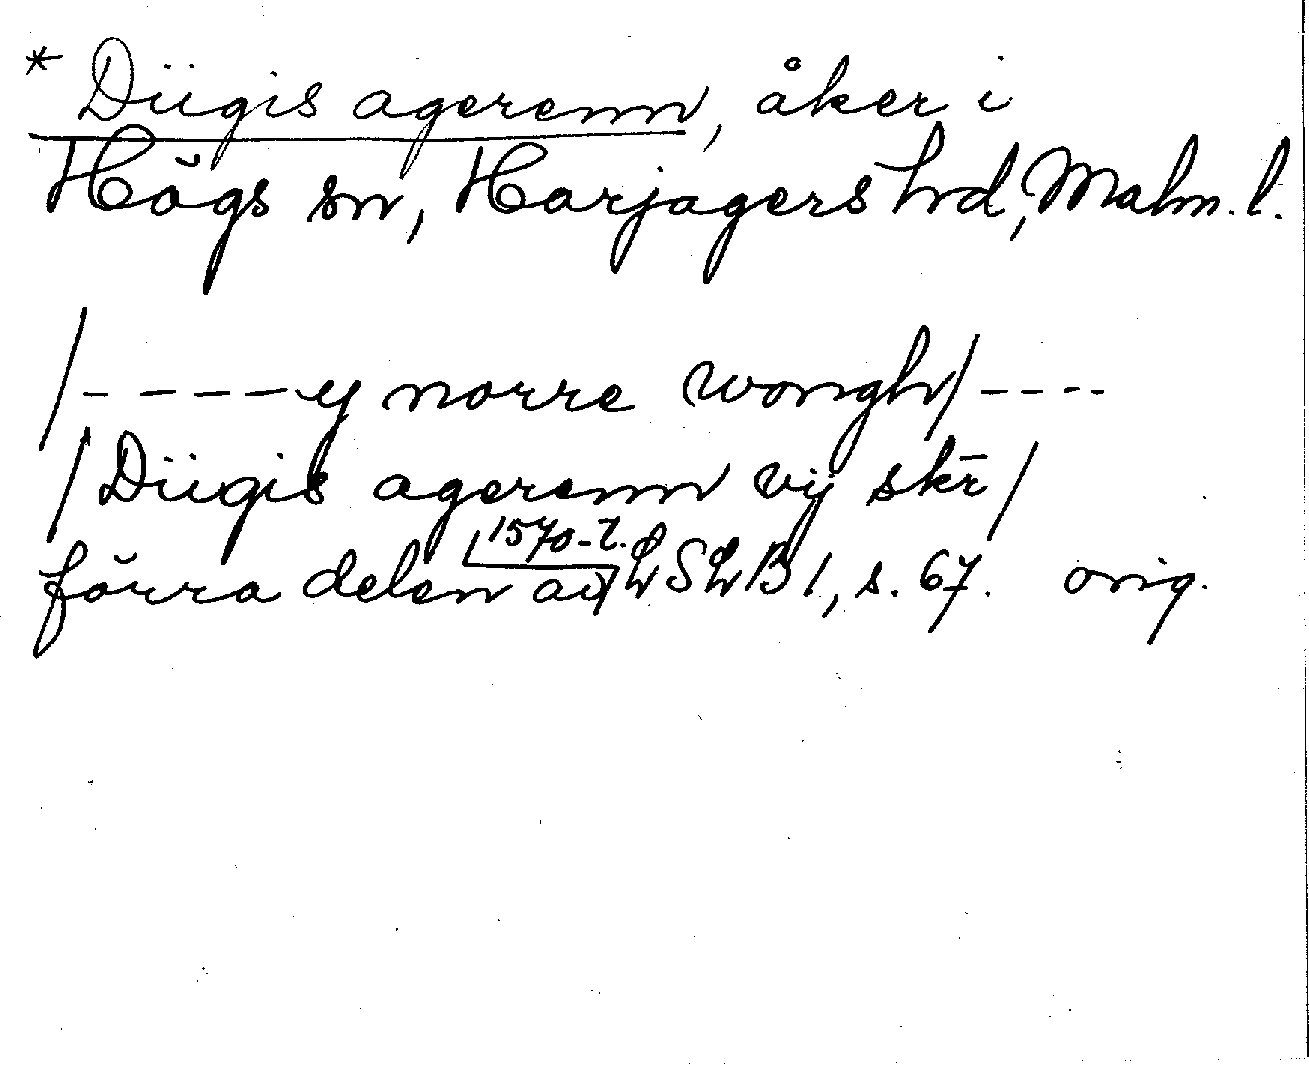 * Diigis agerenn, åker i
Högs sn, Harjagers hrd, Malm. l.
/- - - - - y norre wongh/ - - - -
/Diigis agerenn vij skr̄/
förra delen av 1570-t. LSLB 1, s. 67. orig.